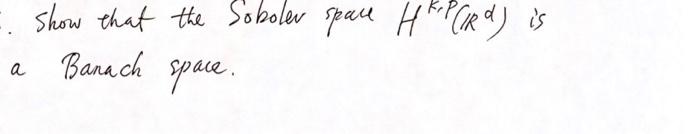 . Show that the Sobolev space H^{k,p}(ℝ^d) is
a Banach space.